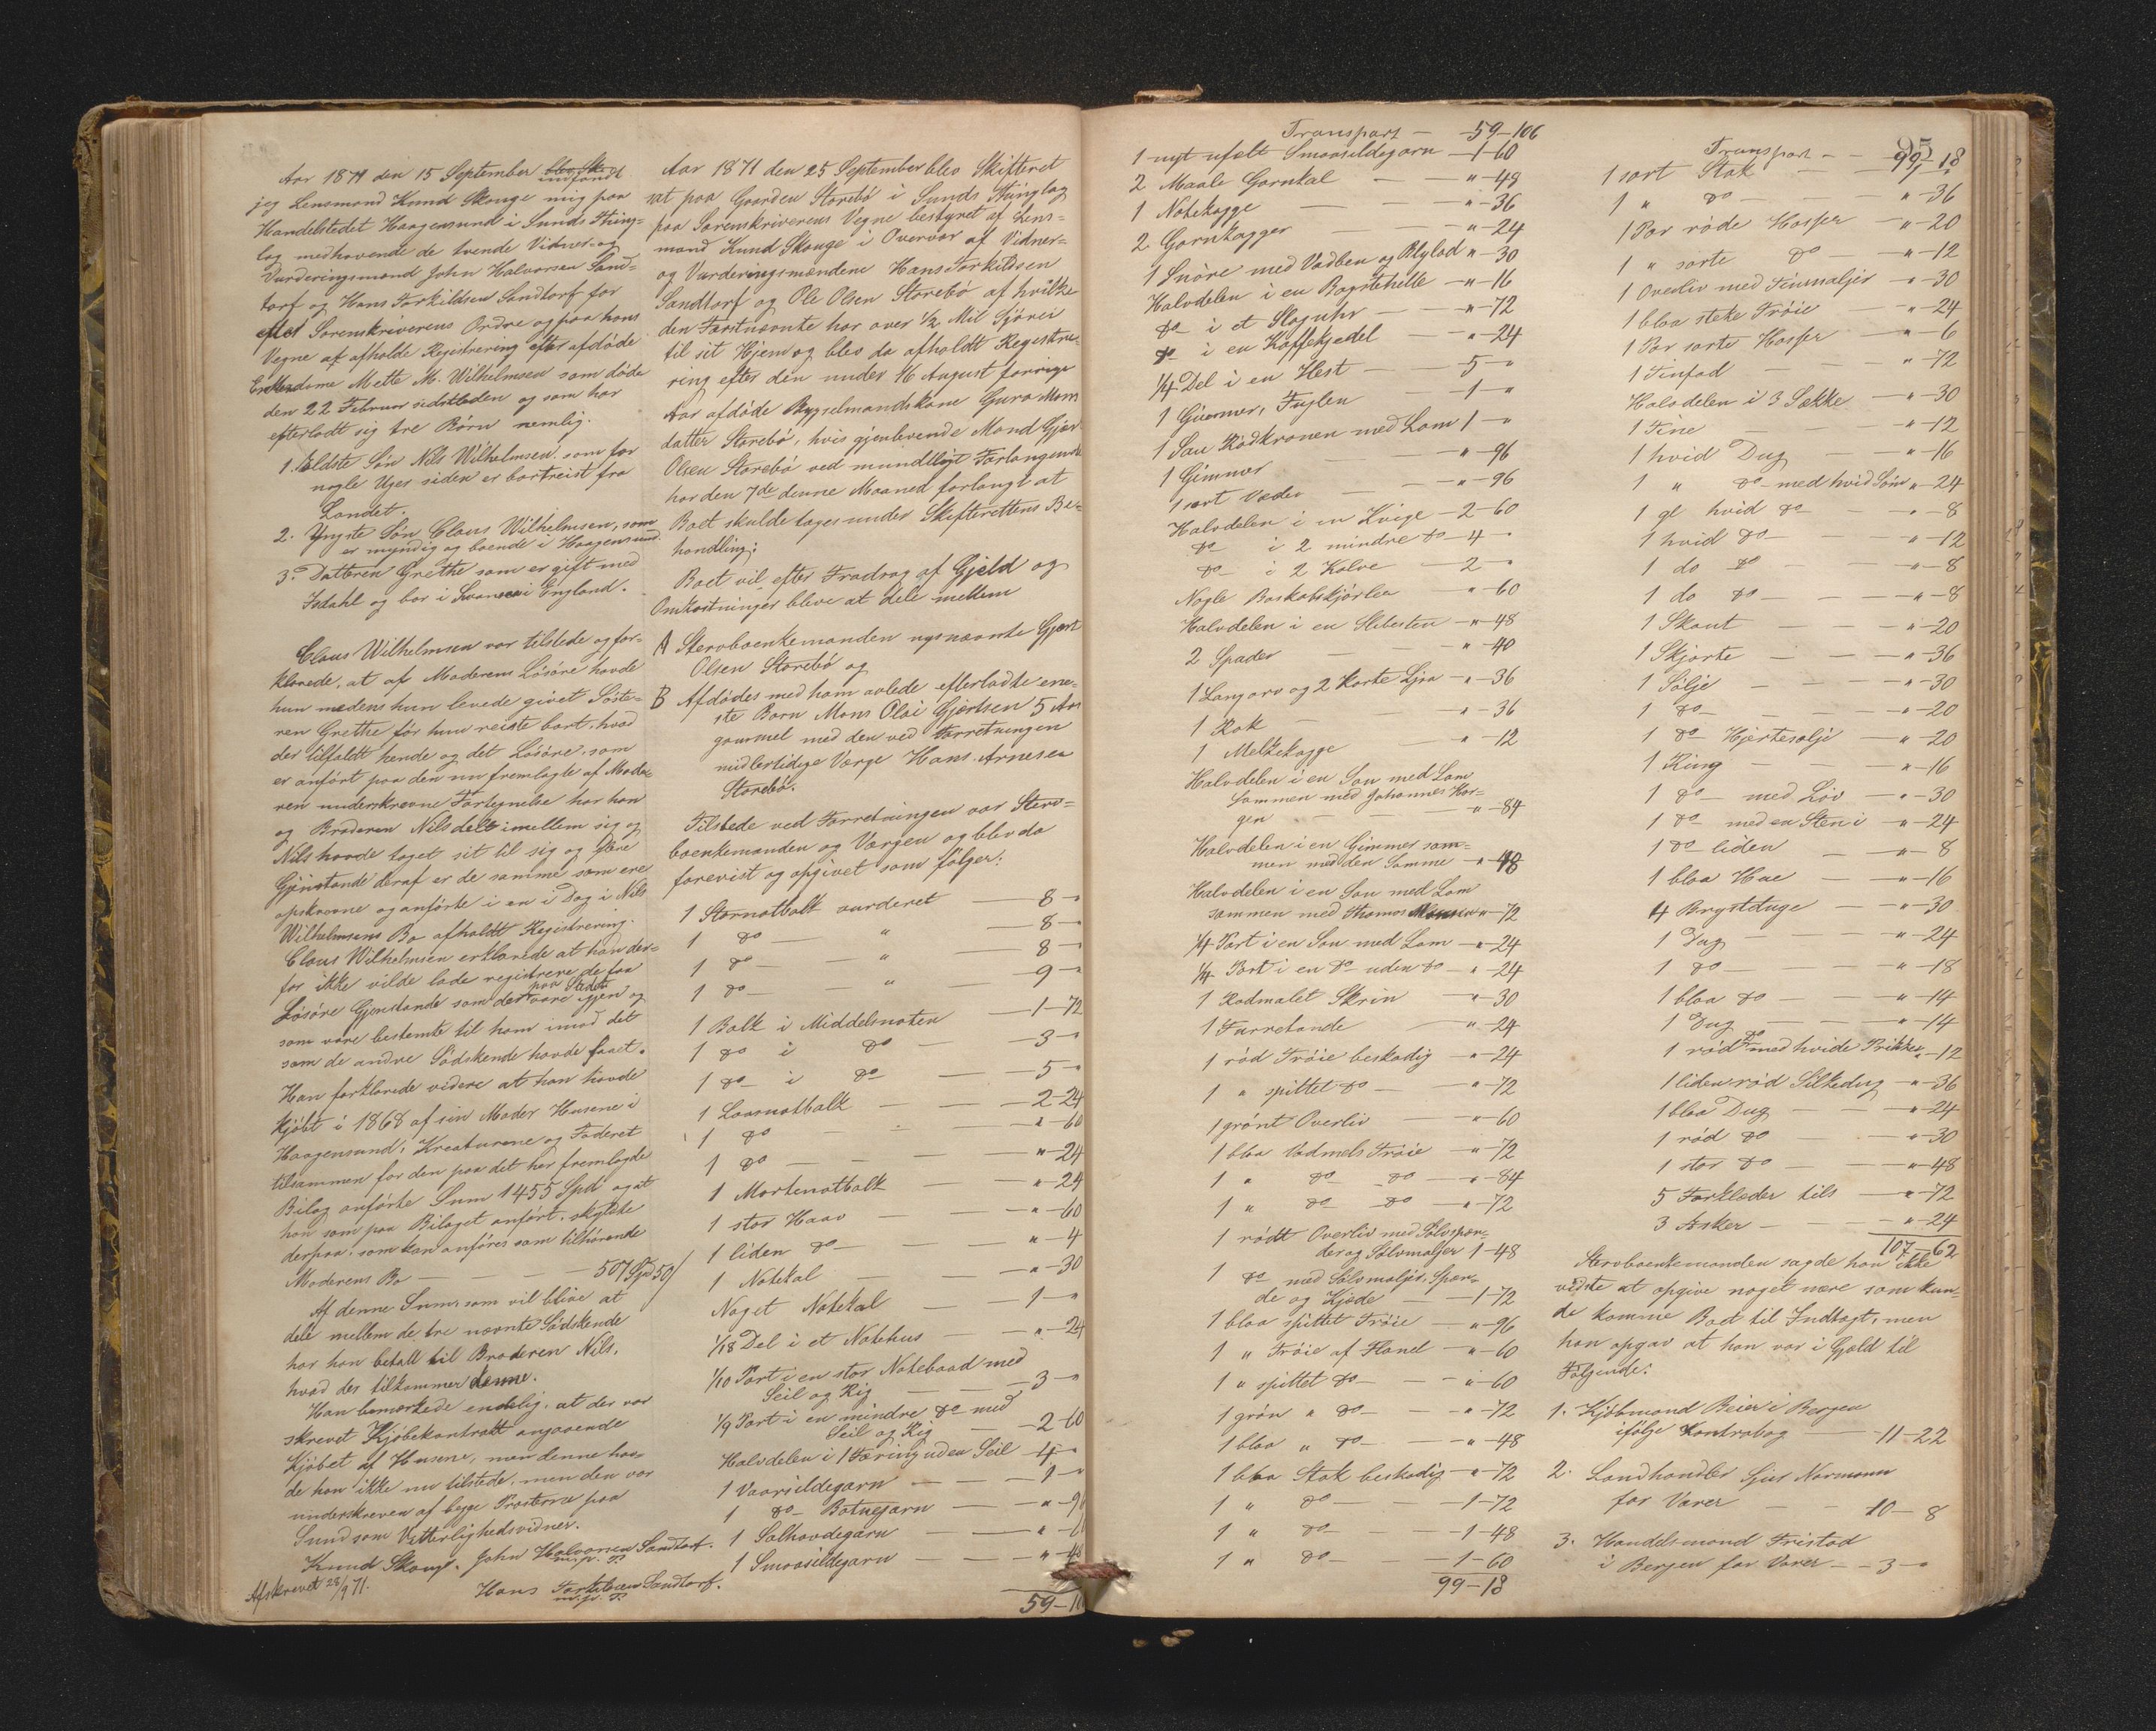 Aar 1871 den 15 September blev Ske indfandt
jeg Lensmand Knud Skouge mig paa
Handelstedet Haagensund i Sunds Thing-
lag medhavende de tvende Vidner og
Vurderingsmænd John Halvorsen Sand-
torf og Hans Torkildsen Sandtorf for
efter Sorenskriverens Ordre og paa hans
Vegne at afholde Registrering efter afdøde
Enkemadame Mette M. Wilhelmsen som døde
den 22 Februar sidstleden og som har
efterladt sig tre Børn nemlig.
1. Ældste Søn Nils Wilhelmsen som for
nogle Uger siden er bortreist fra
Landet.
2. Yngste Søn Claus Wilhelmsen, som
er myndig og boende i Haagensund
3. Datteren Grethe som er gift med
Isdahl og bor i Swansea i England.
Claus Wilhelmsen var tilstede og for-
klarede, at af Moderens Løsøre havde
hun medens hun levede givet Søste-
ren Grethe før hun reiste bort, hvad
der tilfaldt hende og det Løsøre, som
er anført paa den nu fremlagte af Mode-
ren underskrevne Fortegnelse har han
og Broderen Nils delt imellem sig og
Nils havde taget sit til sig og flere
Gjenstande deraf er de samme som ere
opskrevne og anførte i en i Dag i Nils
Wilhelmsens Bo afholdt Registrering.
Claus Wilhelmsen erklærede at han der-
for ikke vilde lade registrere de faa
Løsøre Gjenstande som der vare igjen og paa Stedet
som vare bestemte til ham imod det
som de andre Sødskende havde faaet.
Han forklarede videre at han havde
kjøbt i 1868 af sin Moder Husene i
Haagensund, Kreaturene og Foderet
tilsammen for den paa det her fremlagde
Bilag anførte Sum 1455 Spd og at
han som paa Bilaget anført, skyldte
derpaa, som kan anføres som tilhørende
Moderens Bo — — — 507 Spd 50/
Af denne Sum som vil blive at
dele mellem de tre nævnte Sødskende
har han betalt til Broderen Nils,
hvad der tilkommer denne.
Han bemærkede endelig, at der var
skrevet Kjøbekontrakt angaaende
Kjøbet af Husene, men denne hav-
de han ikke nu tilstede, men den var
underskreven af begge Præsterne paa
Sund som Vitterlighedsvidner.
Knud Skouge. John Halvorsen Sandtorf.
m. p. P.
Hans Torkildsen Sandtorf.
m. p. P.
Afskrevet 28/9 71.
Aar 1871 den 25 September blev Skifteret
sat paa Gaarden Storebø i Sunds Thinglag
paa Sorenskriverens Vegne bestyret af Lens-
mand Knud Skouge i Overvær af Vidner-
og Vurderingsmændene Hans Torkildsen
Sandtorf og Ole Olsen Storebø af hvilke
den Førstnævnte har over 1/2 Mil Sjøvei
til sit Hjem og blev da afholdt Registre-
ring efter den under 16 August forrige
Aar afdøde Bygselmandskone Guro Mons
datter Storebø, hvis gjenlevende Mand Gjert
Olsen Storebø ved mundtligt Forlangende
har den 7de denne Maaned forlangt at
Boet skulde tages under Skifterettens Be-
handling:
Boet vil efter Fradrag af Gjeld og
Omkostninger blive at dele mellem
A Stervboenkemanden nysnævnte Gjert
Olsen Storebø og
B Afdødes med ham avlede efterladte ene-
ste Barn Mons Olai Gjertsen 5 Aar
gammel med den ved Forretningen
midlertidige Værge Hans Arnesen
Storebø.
Tilstede ved Forretningen var Sterv-
boenkemanden og Værgen og blev da
forevist og opgivet som følger:
1 Stornotbalk vurderet — 8 "
1 do — " — 8 "
1 do — " — 8 "
1 do — " — 9 "
1 Balk i Middelsnoten — 1-72
1 do i do — 3 "
1 do i do — 5 "
1 Laasnotbalk — 2-24
1 do — " -60
1 do — " -24
1 Mortenotbalk — " -24
1 stor Haav — " -60
1 liden do — " -4
1 Notekal — " -30
Noget Notekal — 1 "
1/18 Del i et Notehus — " -24
1/10 Part i en stor Notebaad med
Seil og Rig — 3 "
1/9 Part i en mindre do med
Seil og Rig — 2-60
Halvdelen i 1 Færing uden Seil — 4 "
1 Vaarsildegarn — 1 "
1 do Botnegarn — "
1 Salhovdegarn — "
1 Smaasildegarn — " -48
59-1
Transport — 59-106
1 nyt ufælt Smaasildegarn — 1-60
2 Maale Garnkal — " -48
1 Notekagge — " -36
2 Garnkagger — " -24
1 Snøre med Vadben og Blylod " -30
Halvdelen i en Bagstehelle — " -16
do i et Slaguhr — " -72
do i en Kaffekjedel " -24
1/4 Del i en Hest — 5 "
1 Gimmer, Fuglen — 1 "
1 Sau Rødkronen med Lam 1 "
1 Gimmer — " -96
1 sort Væder — " -96
Halvdelen i en Kvige — 2-60
do i 2 mindre do — 4 "
do i 2 Kalve — 2 "
Nogle Buskabskjørler — " -60
Halvdelen i en Slibesten — " -48
2 Spader — " -40
1 Langorv og 2 Korte Ljaa — " -36
1 Rok — " -36
1 Melkekagge — " -12
Halvdelen i en Sau med Lam
sammen med Johannes Hor-
gen — " -84
Halvdelen i en Gimmer sam-
men med den Samme — " -48
Halvdelen i en Sau med Lam
sammen med Thomas Monsen " -72
1/4 Part i en Sau med Lam — " -24
1/4 Part i en do uden do — " -24
1 Rødmalet Skrin — " -30
1 Furretønde — " -24
1 rød Trøie beskadig — " -24
1 " spittet do — " -72
1 grønt Overliv — " -60
1 blaa Vadmels Trøie — " -72
1 " do do — " -84
1 " do do — " -72
1 rødt Overliv med Sølvspæn-
der og Sølvmaljer 1-48
1 do med Sølvmaljer, Spæn-
de og Kjæde — 1-72
1 blaa spittet Trøie — " -96
1 " Trøie af Flanel — " -60
1 " spittet do — " -60
1 grøn " do — " -72
1 blaa " do — " -48
1 blaa Stak beskadig — " -72
1 " do — 1-72
1 " do — 1-48
1 " do — 1-60
99-18
95
Transport — 99-18
1 sort Stak — 1 "
1 " do — " -36
1 Par røde Hosser " -20
1 " sorte do — " -12
1 Overliv med Tinmaljer " -30
1 blaa stekt Trøie — " -24
1 Par sorte Hosser — " -6
1 Tinfad — " -72
Halvdelen i 3 Sække — " -30
1 Tine — " -12
1 hvid Dug — " -16
1 " do med hvid Søm " -24
1 gl hvid do — " -8
1 hvid do — " -12
1 do do — " -8
1 do do — " -8
1 Skaut — " -20
1 Skjorte — " -36
1 Sølje — " -30
1 do — " -20
1 do Hjertesølje — " -20
1 Ring — " -16
1 do med Løv — " -30
1 do med en Sten i " -24
1 do liden — " -8
1 blaa Hue — " -16
4 Brystduge — " -30
1 Dug — " -24
1 do — " -18
1 blaa do — " -14
1 Dug — " -14
1 rød do med hvide Prikker " -12
1 liden rød Silkedug — " -36
1 blaa Dug — " -24
1 rød do — " -30
1 stor do — " -48
5 Forklæder tils — " -72
3 Æsker — " -24
107-62
Stervboenkemanden sagde han ikke
vidste at opgive noget mere som kun-
de komme Boet til Indtægt, men
han opgav at han var i Gjæld til
Følgende:
1. Kjøbmand Beier i Bergen
ifølge Kontrabog — 11-22
2. Landhandler Sjur Normann
for Varer — 10-8
3. Handelsmand Fristad
i Bergen for Varer — 3 "